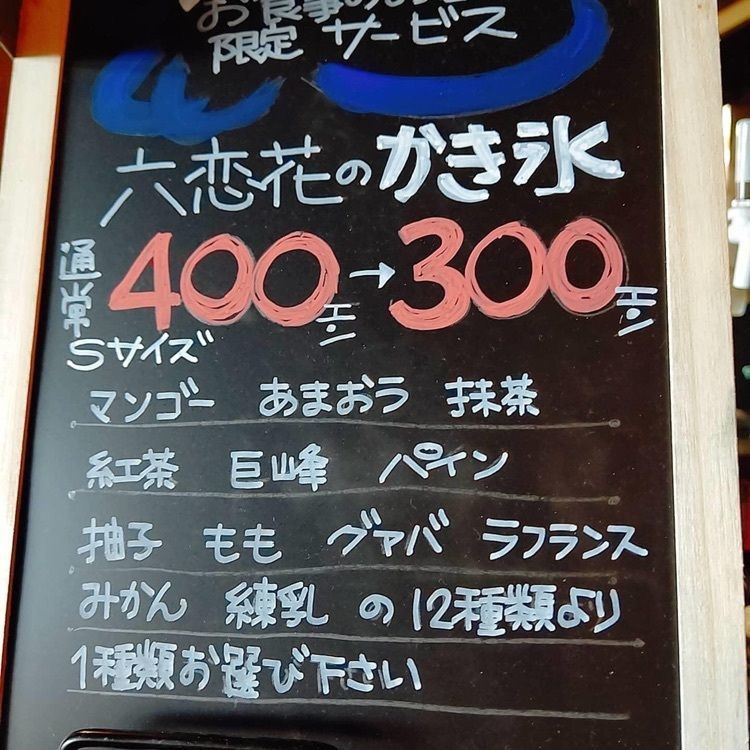 お食事の
限定 サービス
六恋花のかき氷
通常 400エン→300エン
Sサイズ
マンゴー あまおう 抹茶
紅茶 巨峰 パイン
柚子 もも グァバ ラフランス
みかん 練乳 の 12種類より
1種類お選び下さい